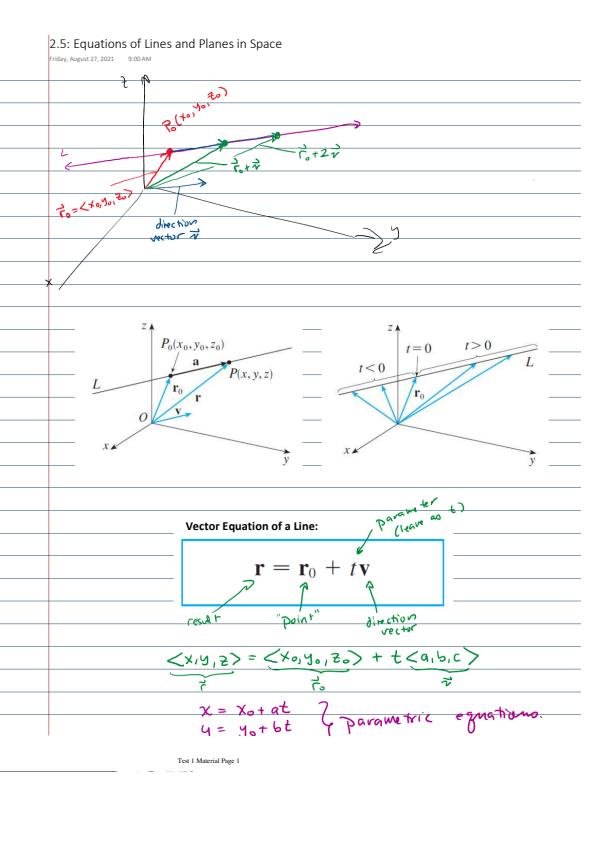 2.5: Equations of Lines and Planes in Space
Friday, August 27, 2021 9:00 AM
z
P₀(x₀,y₀,z₀)
L
r⃗₀+2v⃗
r⃗₀+v⃗
r⃗₀=<x₀,y₀,z₀>
direction
vector v⃗
y
x
z
P₀(x₀, y₀, z₀)
a
P(x, y, z)
L
r₀
r
O
v
x
y
z
t=0
t>0
t<0
L
r₀
x
y
parameter
(leave as t)
Vector Equation of a Line:
r = r₀ + tv
result
"point"
direction
vector
<x,y,z> = <x₀,y₀,z₀> + t<a,b,c>
r⃗
r⃗₀
v⃗
x = x₀+at
y = y₀+bt
} parametric equations.
Test 1 Material Page 1